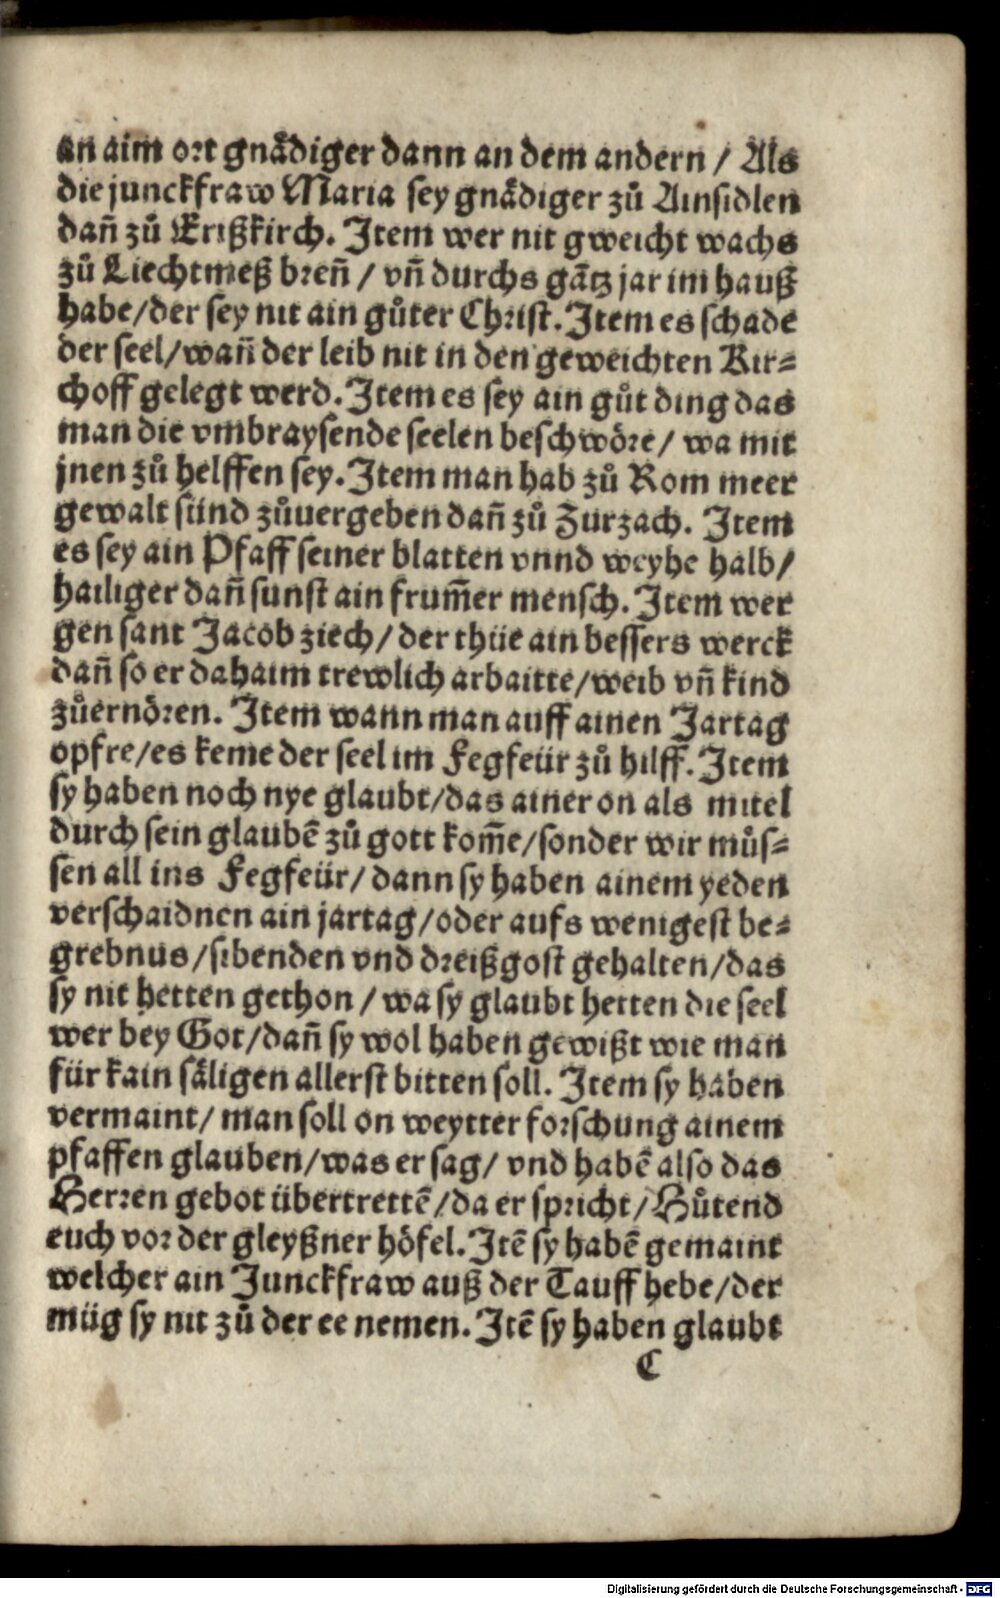 an aim ort gnådiger dann an dem andern / Als
die junckfraw Maria sey gnådiger zů Ainsidlen
dañ zů Erißkirch. Item wer nit gweicht wachs
zů Liechtmeß breñ / vñ durchs gãtz jar im hauß
habe/der sey nit ain gůter Christ. Item es schade
der seel/wañ der leib nit in den geweichten Kir⸗
choff gelegt werd. Item es sey ain gůt ding das
man die vmbraysende seelen beschwöre/ wa mit
jnen zů helffen sey. Item man hab zů Rom meer
gewalt sünd zůuergeben dañ zů Zurzach. Item
es sey ain Pfaff seiner blatten vnnd weyhe halb/
hailiger dañ sunst ain frum̃er mensch. Item wer
gen sant Jacob ziech/der thüe ain bessers werck
dañ so er dahaim trewlich arbaitte/weib vñ kind
zůernören. Item wann man auff ainen Jartag
opfre/es keme der seel im Fegfeür zů hilff. Item
sy haben noch nye glaubt/das ainer on als mitel
durch sein glaubẽ zů gott kom̃e/sonder wir můs⸗
sen all ins Fegfeür/ dann sy haben ainem yeden
verschaidnen ain jartag/oder aufs wenigest be⸗
grebnus/sibenden vnd dreißgost gehalten/das
sy nit hetten gethon / wa sy glaubt hetten die seel
wer bey Got/dañ sy wol haben gewißt wie man
für kain såligen allerst bitten soll. Item sy haben
vermaint/ man soll on weytter forschung ainem
pfaffen glauben/was er sag/ vnd habẽ also das
Herren gebot übertrettẽ/da er spricht/Hůtend
euch vor der gleyßner höfel. Itẽ sy habẽ gemaint
welcher ain Junckfraw auß der Tauff hebe/der
müg sy nit zů der ee nemen. Itẽ sy haben glaubt
C
Digitalisierung gefördert durch die Deutsche Forschungsgemeinschaft - DFG